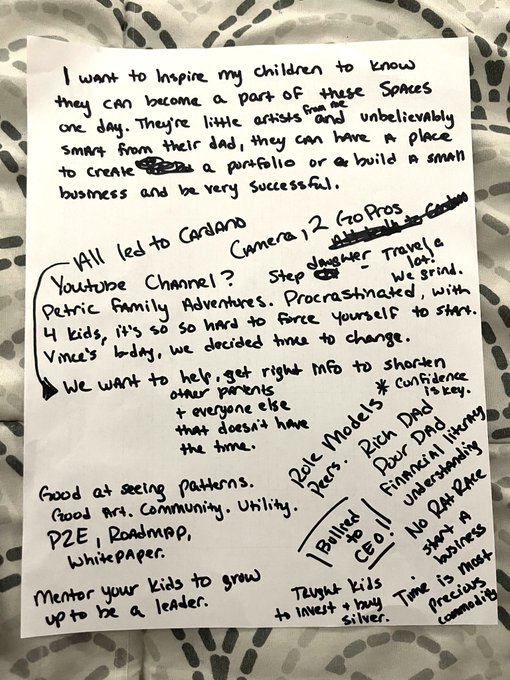 I want to inspire my children to know
they can become a part of these spaces
one day. They're little artists from me and unbelievably
smart from their dad, they can have a place
to create a portfolio or build a small
business and be very successful.
All led to Cardano
Camera, 2 GoPros
Youtube Channel? Step daughter - Travel a lot! We grind.
Petric Family Adventures. Procrastinated, with
4 kids, it's so so hard to force yourself to start.
Vince's b-day, we decided time to change.
We want to help, get right info to shorten
other parents
+ everyone else
that doesn't have
the time.
* Confidence
is key.
Role Models
Peers.
Rich Dad
Poor Dad
Financial literacy
understanding
No Rat Race
start a
business
Time is most
precious
commodity
Good at seeing patterns.
Good Art. Community. Utility.
P2E, Roadmap,
Whitepaper.
Bullied
to
CEO!
Mentor your kids to grow
up to be a leader.
Taught kids
to invest + buy
silver.